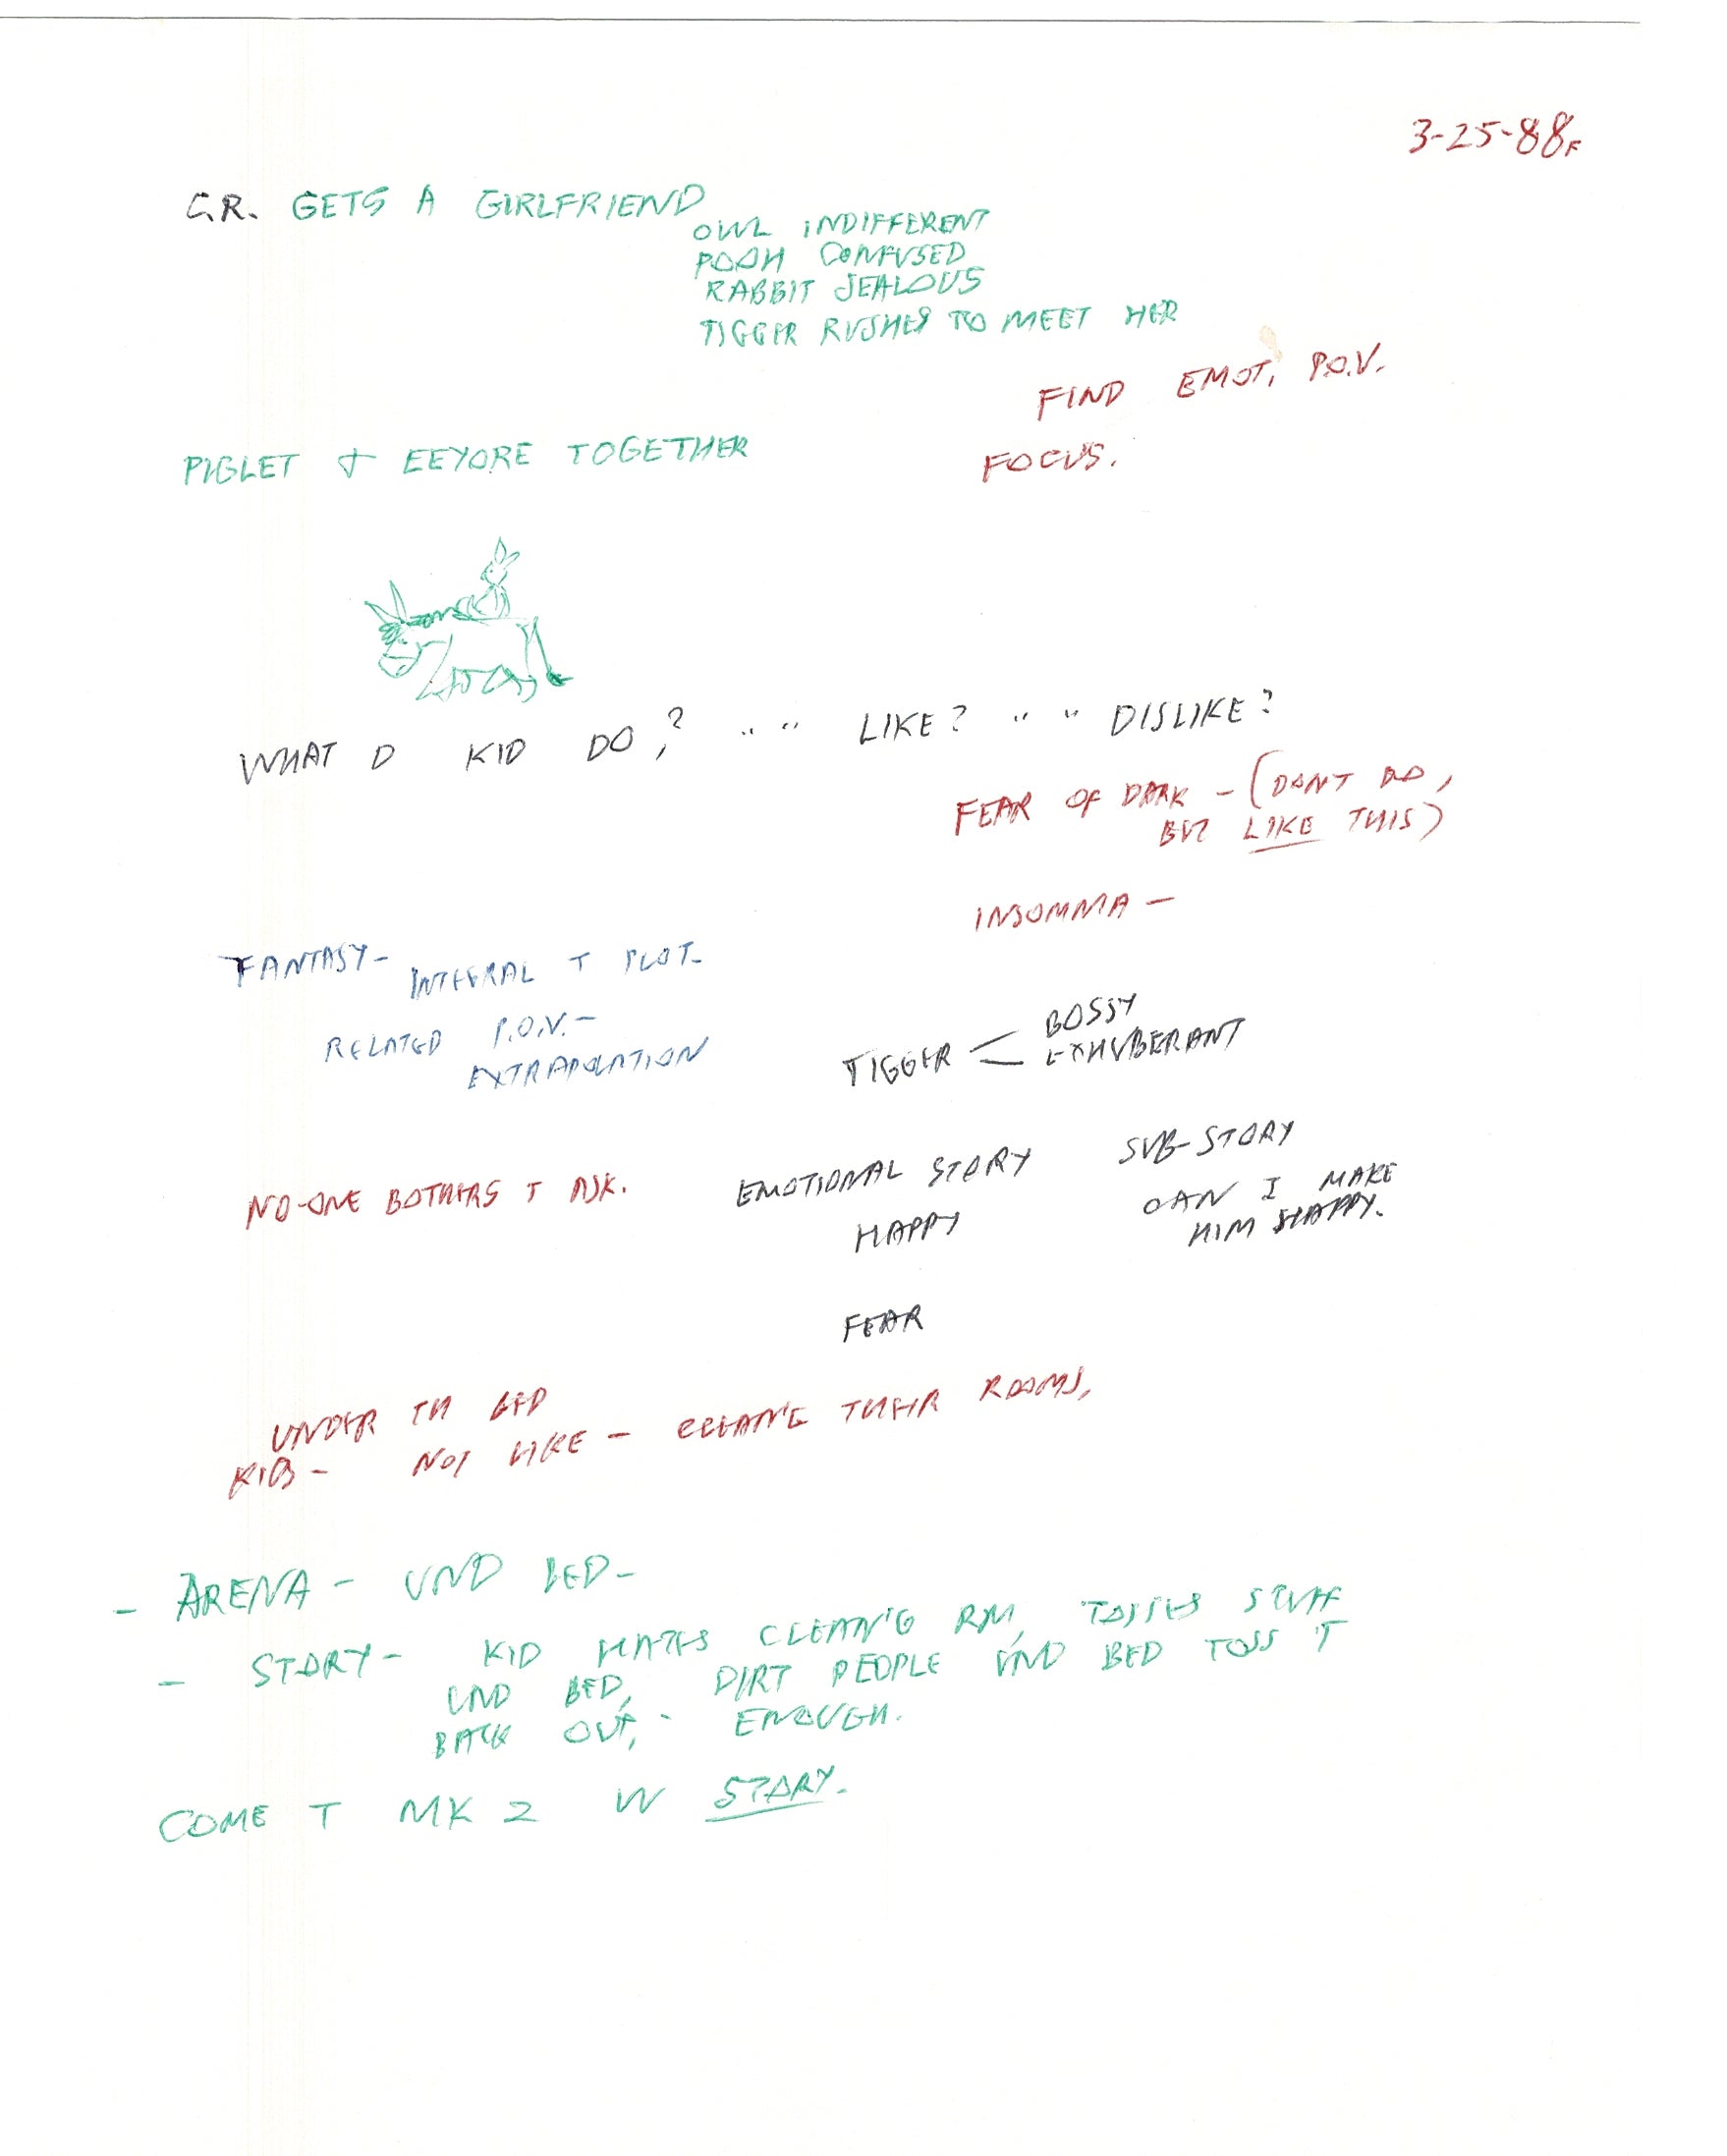 3-25-88F
C.R. GETS A GIRLFRIEND
OWL INDIFFERENT
POOH CONFUSED
RABBIT JEALOUS
TIGGER RUSHES TO MEET HER
FIND EMOT. P.O.V.
FOCUS.
PIGLET + EEYORE TOGETHER
WHAT D KID DO,? " " LIKE? " " DISLIKE?
FEAR OF DARK - (DONT DO,
BUT LIKE THIS)
INSOMNIA -
FANTASY - INTEGRAL T PLOT.
RELATED P.O.V. -
EXTRAPOLATION
TIGGER < BOSSY
EXHUBERANT
NO-ONE BOTHERS T ASK.
EMOTIONAL STORY
HAPPY
SUB-STORY
CAN I MAKE
HIM HAPPY.
FEAR
UNDER TH BED
KIDS - NOT LIKE - CLEAN'G THEIR ROOMS,
- ARENA - UND BED -
- STORY - KID HATES CLEAN'G RM, TOSSES STUFF
UND BED, DIRT PEOPLE UND BED TOSS IT
BACK OUT, - ENOUGH.
COME T MK 2 W STORY.